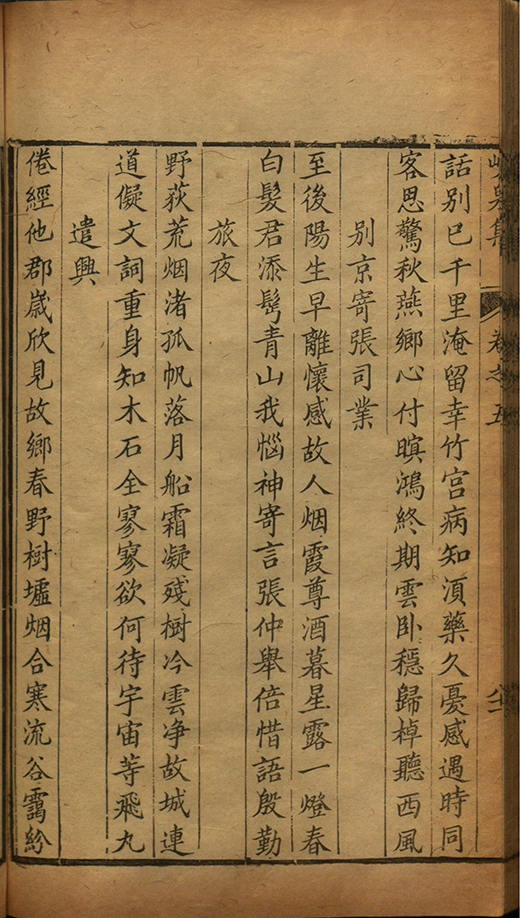 峴泉集 卷之五
話別巳千里淹留幸竹宫病知湏藥久憂感遇時同
客思驚秋燕鄉心付暝鴻終期雲卧穩歸棹聽西風
別京寄張司業
至後陽生早離懷感故人烟霞尊酒暮星露一燈春
白髮君添髩青山我惱神寄言張仲舉倍惜語殷勤
旅夜
野荻荒烟渚孤帆落月船霜凝殘樹冷雲净故城連
道儗文詞重身知木石全寥寥欲何待宇宙等飛丸
遣興
倦經他郡嵗欣見故鄉春野樹墟烟合寒流谷靄紛